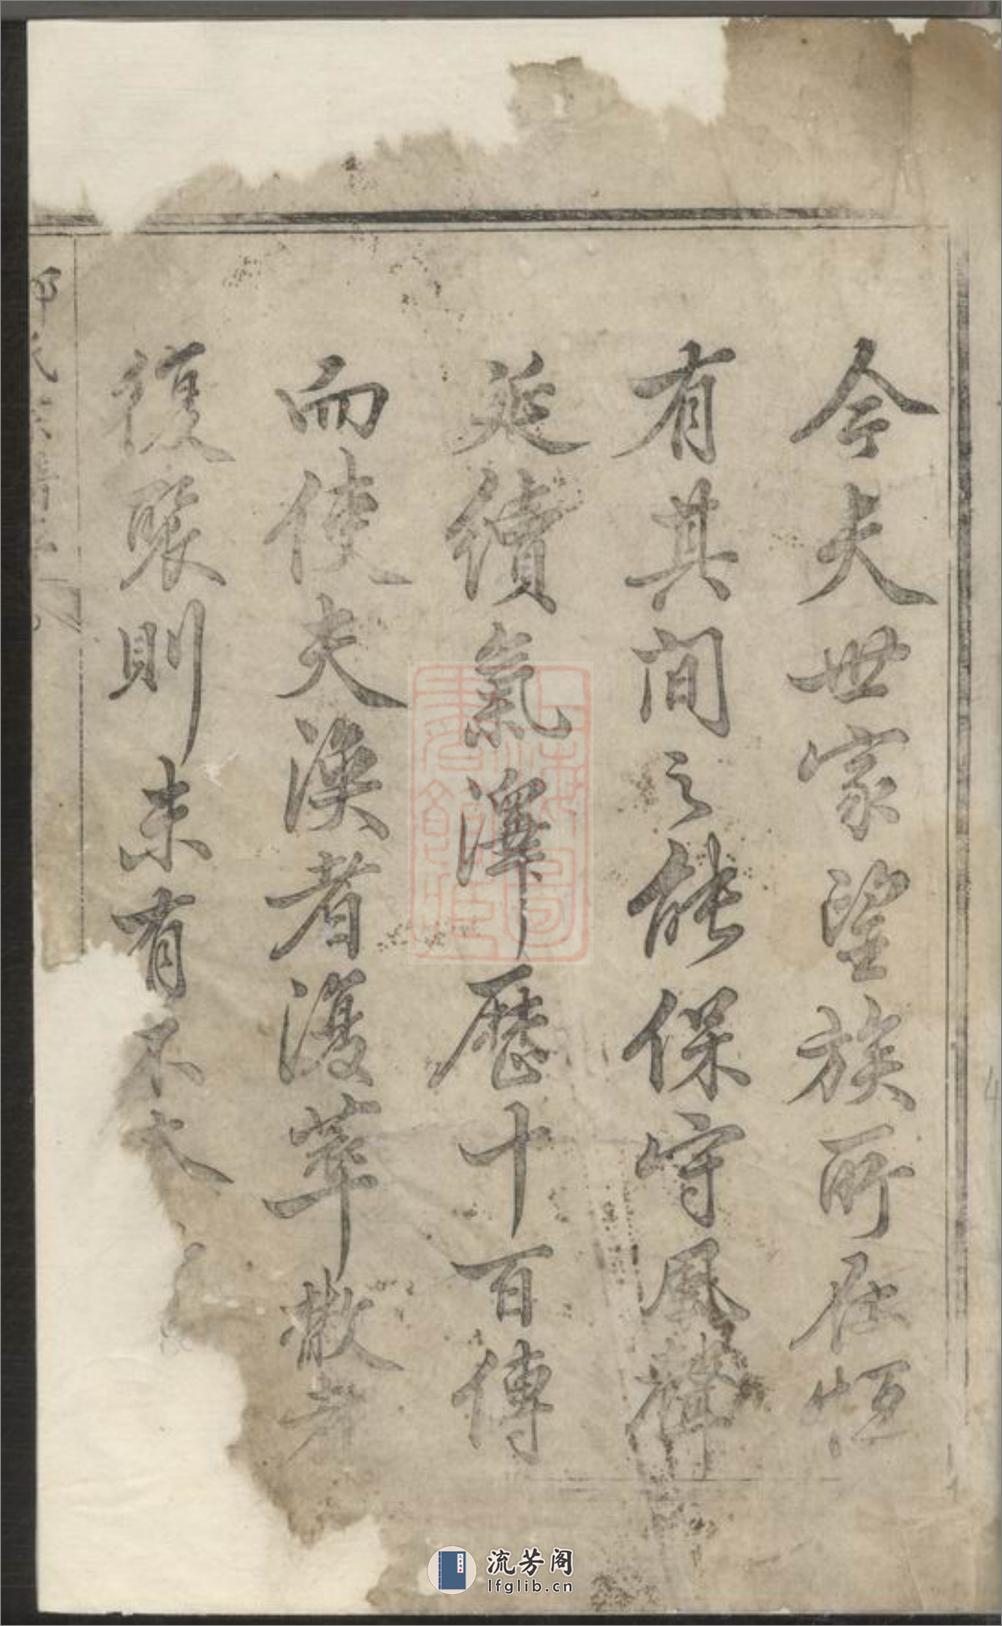 今夫世家望族所在恒
有其間之能保守風聲
延續氣澤歷十百傳
而使夫渙者復萃散者
復聚則未有不大
流芳阁
lfglib.cn